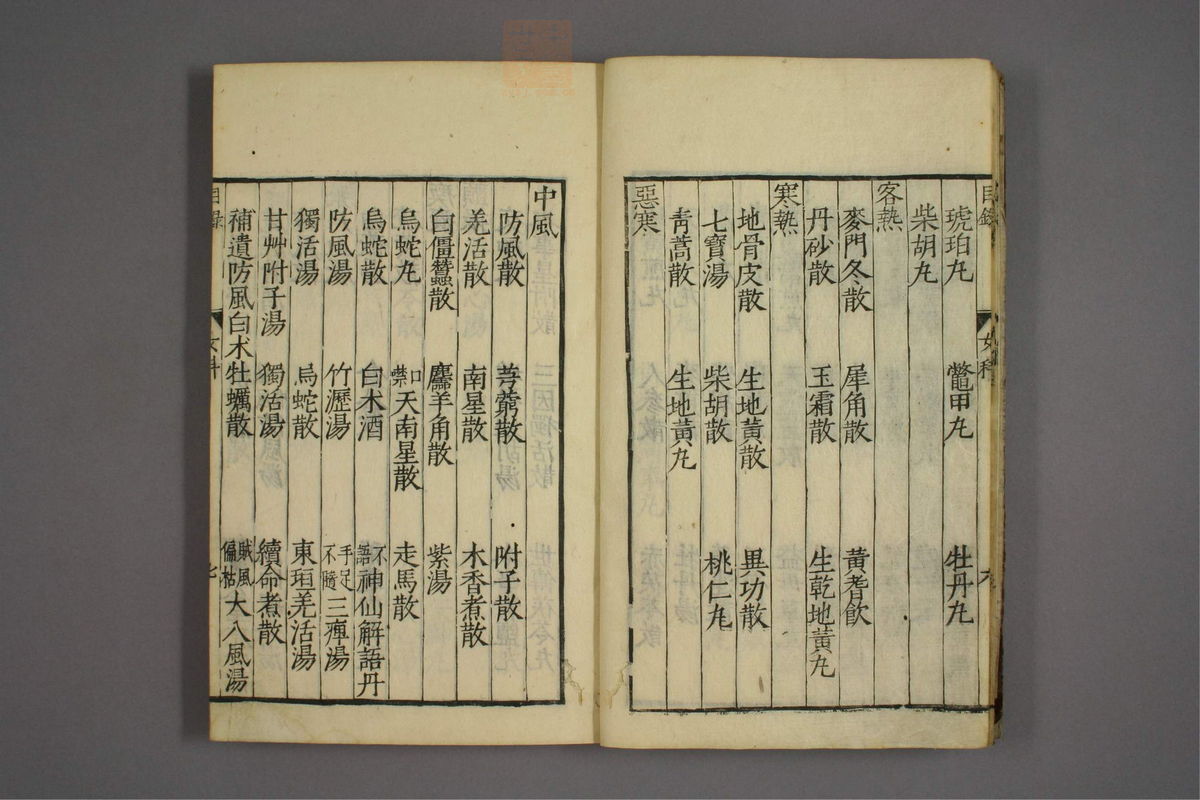 目錄 女科 六
琥珀丸 鼈甲丸 牡丹丸
柴胡丸
客熱
麥門冬散 犀角散 黃耆飲
丹砂散 玉霜散 生乾地黃丸
寒熱
地骨皮散 生地黃散 異功散
七寶湯 柴胡散 桃仁丸
青蒿散 生地黃丸
惡寒
中風
防風散 芎藭散 附子散
羌活散 南星散 木香煮散
白僵蠶散 麢羊角散 紫湯
烏蛇丸 口噤天南星散 走馬散
烏蛇散 白朮酒 不語神仙解語丹
防風湯 竹瀝湯 手足不隨三痺湯
獨活湯 烏蛇散 東垣羌活湯
甘艸附子湯 獨活湯 續命煮散
補遺防風白朮牡蠣散 賊風偏枯大八風湯
目錄 女科 七